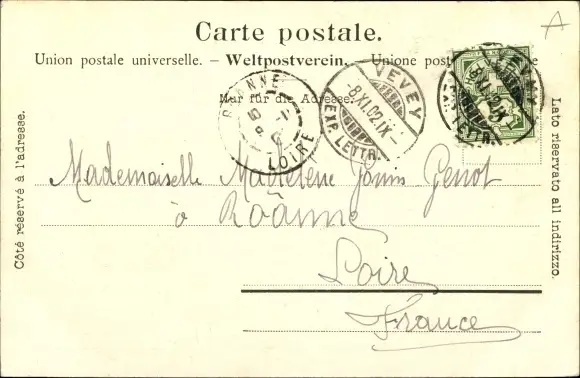 A
Carte postale.
Union postale universelle. – Weltpostverein. – Unione postale
Nur für die Adresse.
Côté réservé à l'adresse.
Lato riservato all indirizzo.
ROANNE
10
LOIRE
VEVEY
-8.XI.02.IX-
EXP. LETTR.
VEVEY
EXP. LETTR.
Mademoiselle Madeleine Genot
à Roânne
Loire
France